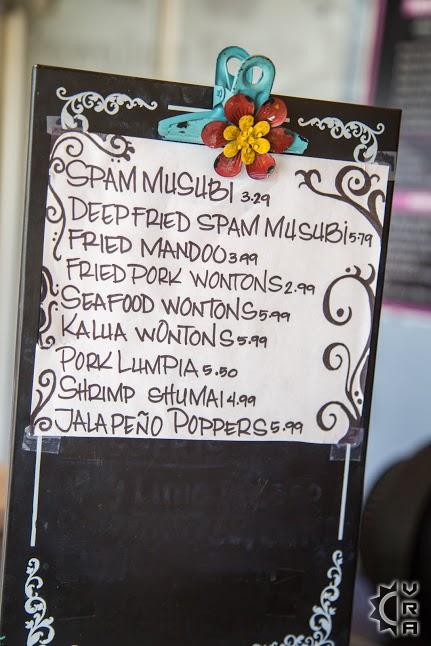 SPAM MUSUBI 3.29
DEEP FRIED SPAM MUSUBI 5.79
FRIED MANDOO 3.99
FRIED PORK WONTONS 2.99
SEAFOOD WONTONS 5.99
KALUA WONTONS 5.99
PORK LUMPIA 5.50
SHRIMP SHUMAI 4.99
JALAPEÑO POPPERS 5.99
VRA